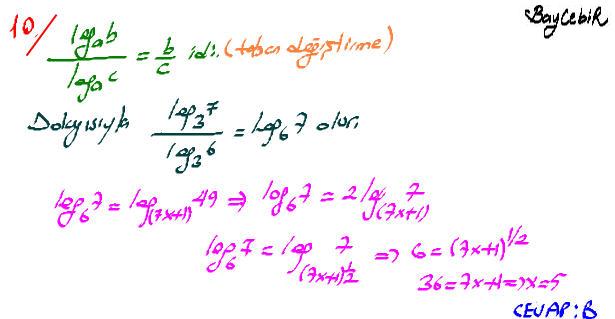 BayCebiR
10/ log_a b / log_a c = b/c idi. (taban değiştirme)
Dolayısıyla log_3 7 / log_3 6 = log_6 7 olur.
log_6 7 = log_(7x+1) 49 ⇒ log_6 7 = 2 log_(7x+1) 7
log_6 7 = log_(7x+1)^1/2 7 ⇒ 6 = (7x+1)^1/2
36 = 7x+1 ⇒ x = 5
CEVAP: B